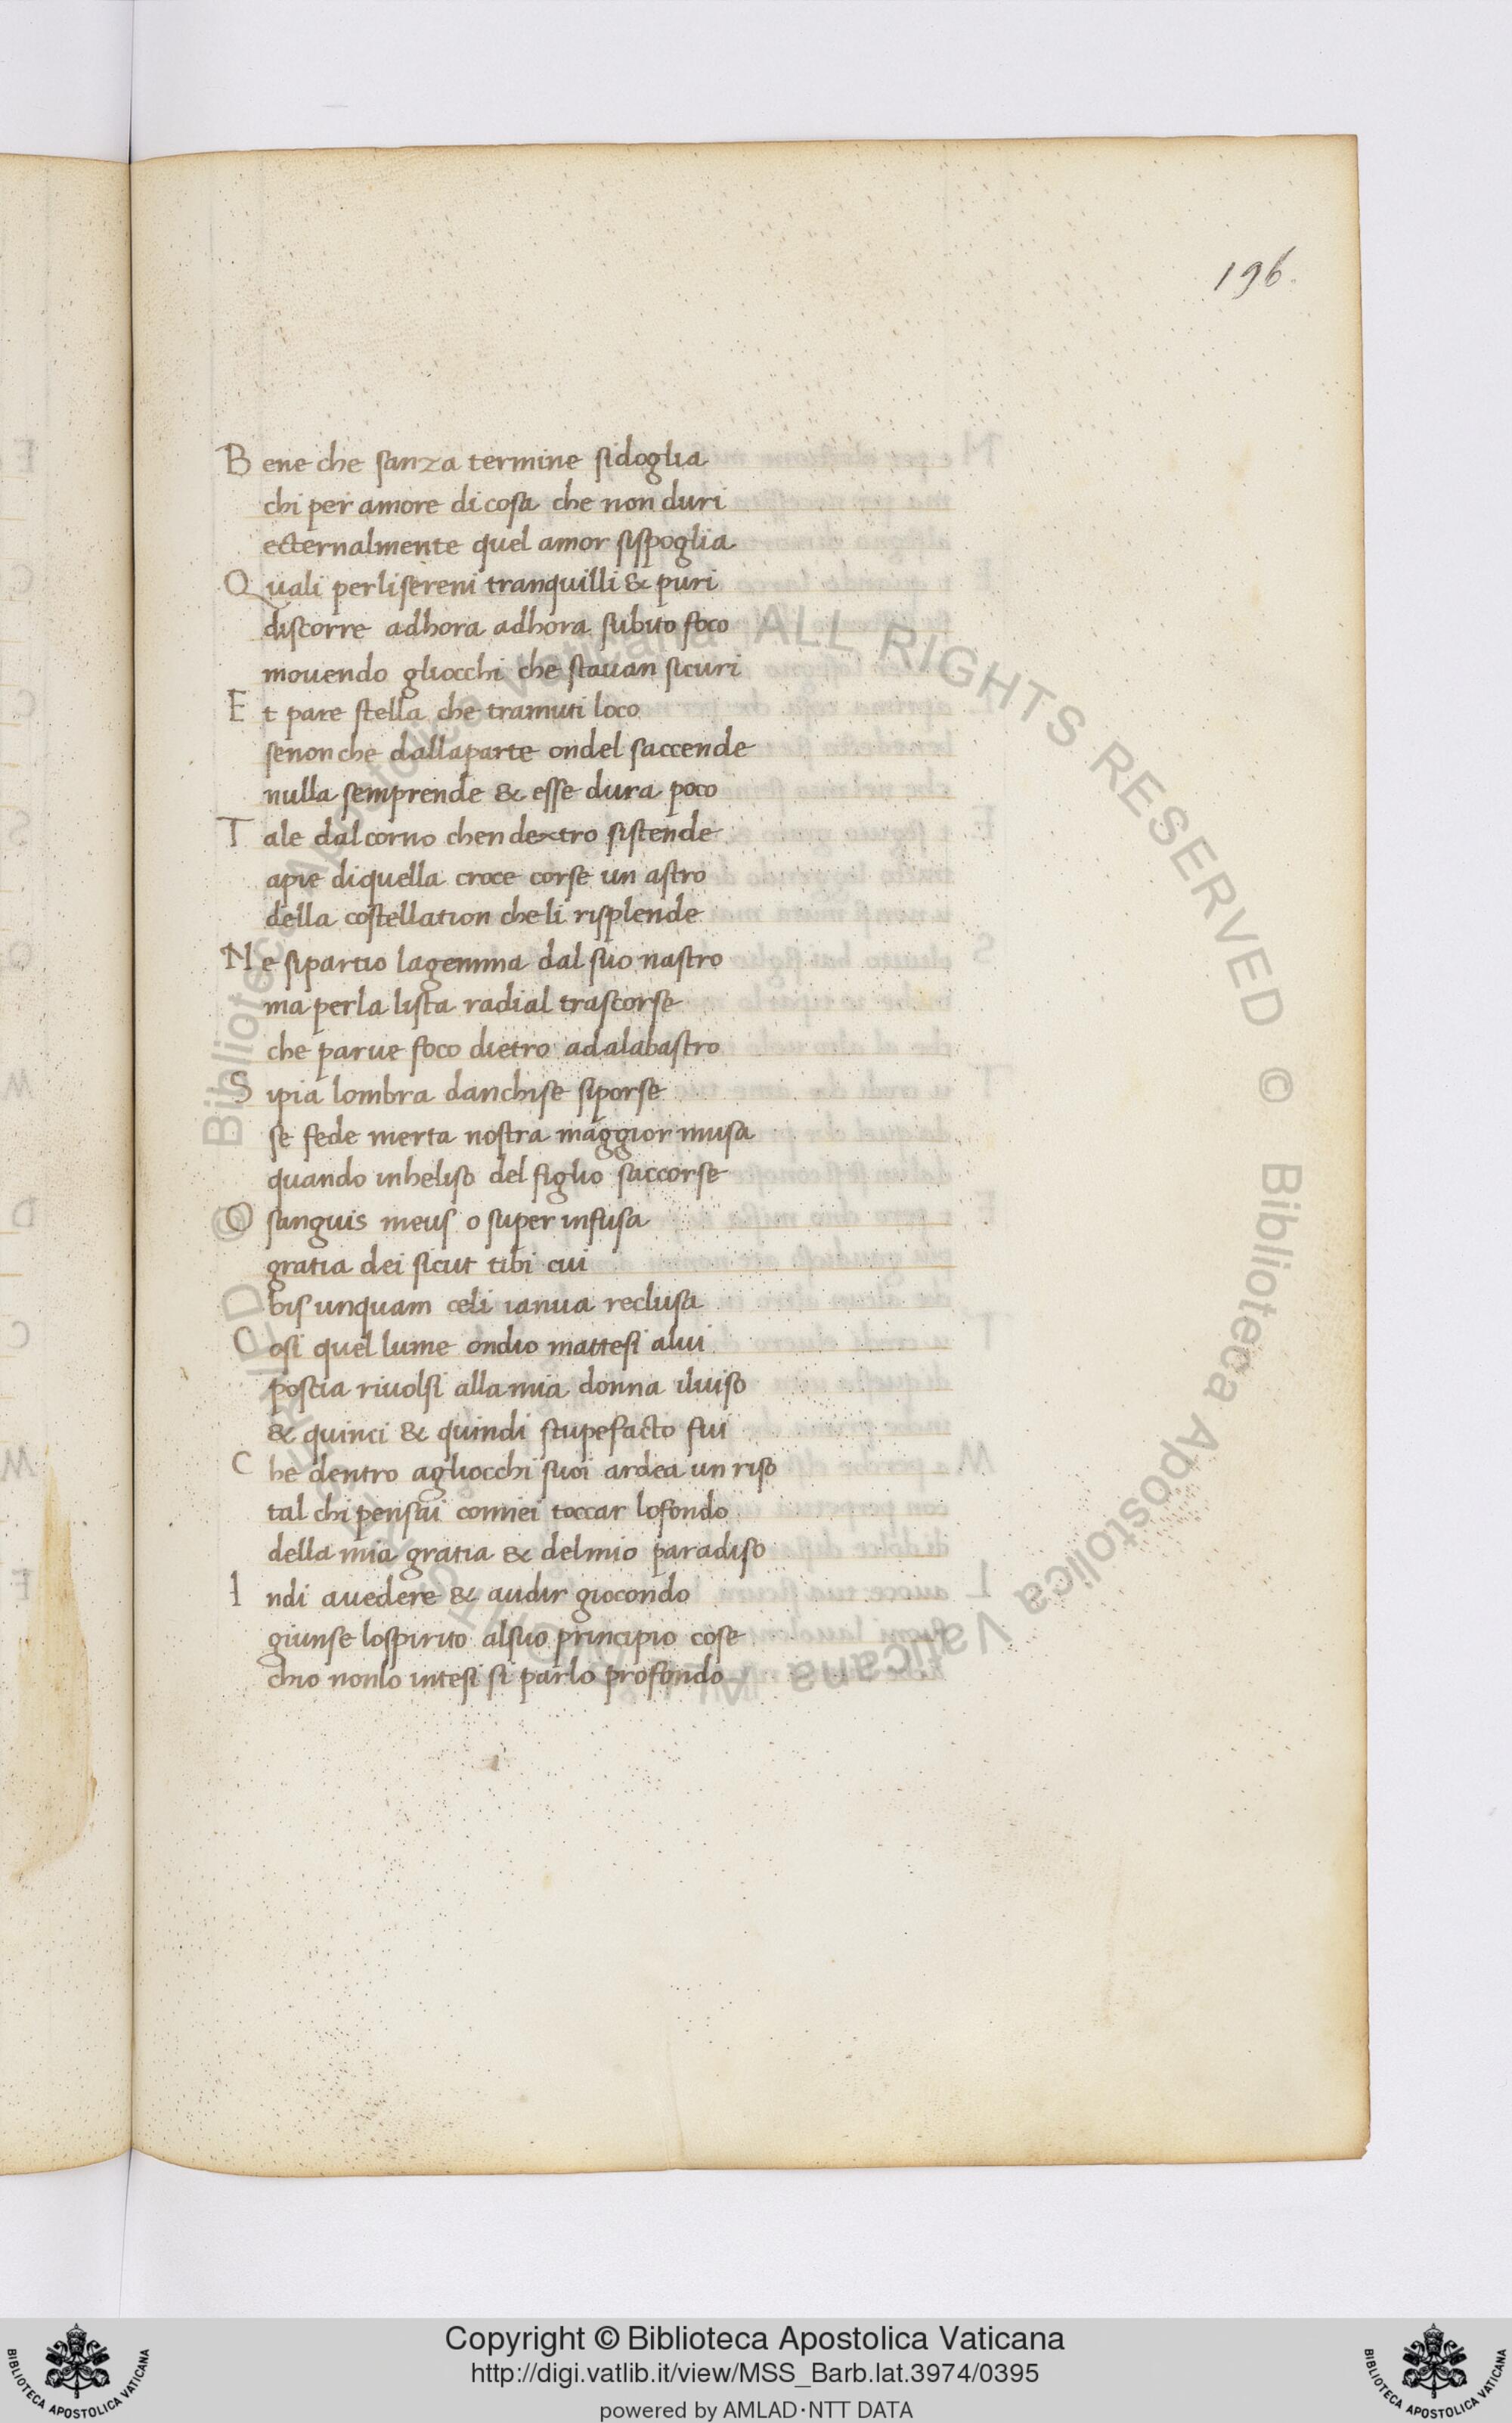 196.
Bene che sanza termine sidoglia
chi per amore di cosa che non duri
ecternalmente quel amor sispoglia
Quali perlisereni tranquilli & puri
discorre adhora adhora subito foco
mouendo gliocchi che stauan sicuri
Et pare stella che tramuti loco
senonche dallaparte ondel saccende
nulla semprende & esse dura poco
Tale dalcorno chendextro sistende
apie diquella croce corse un astro
della costellation cheli risplende
Ne sipartio lagemma dal suo nastro
ma perla lista radial trascorse
che parue foco dietro adalabastro
Sipia lombra danchise siporse
se fede merta nostra maggior musa
quando inheliso del figlio saccorse
O sanguis meus o super infusa
gratia dei sicut tibi cui
bis unquam celi ianua reclusa
Cosi quel lume ondio mattesi alui
poscia riuolsi allamia donna iluiso
& quinci & quindi stupefacto fui
Che dentro agliocchi suoi ardea un riso
tal chi pensai comiei toccar lofondo
della mia gratia & delmio paradiso
Indi auedere & audir giocondo
giunse lospirito alsuo principio cose
chio nonlo intesi si parlo profondo
© Biblioteca Apostolica Vaticana ALL RIGHTS RESERVED © Biblioteca Apostolica Vaticana ALL RIGHTS RESERVED
Copyright © Biblioteca Apostolica Vaticana
http://digi.vatlib.it/view/MSS_Barb.lat.3974/0395
powered by AMLAD·NTT DATA
BIBLIOTECA APOSTOLICA VATICANA
BIBLIOTECA APOSTOLICA VATICANA